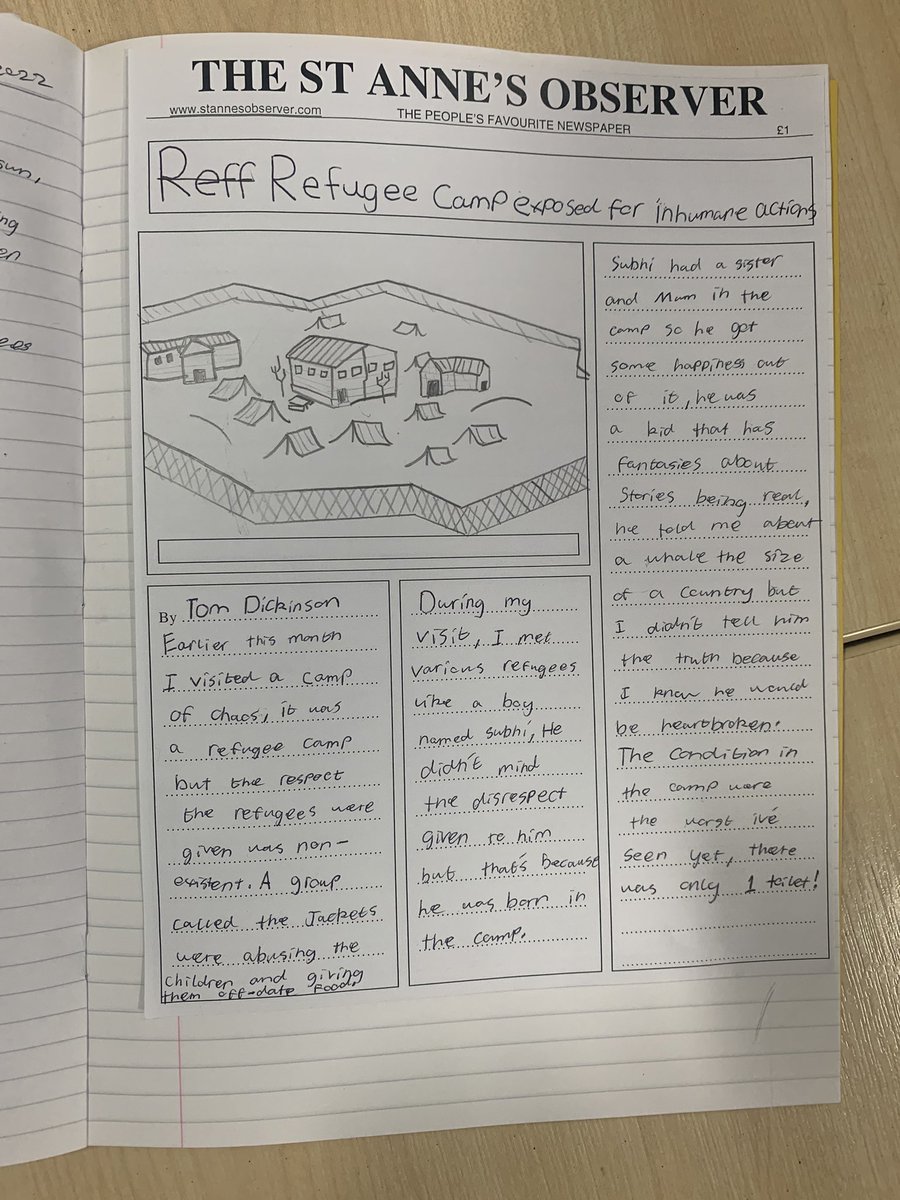 2022
THE ST ANNE'S OBSERVER
www.stannesobserver.com
THE PEOPLE'S FAVOURITE NEWSPAPER
£1
Reff Refugee Camp exposed for inhumane actions
By Tom Dickinson
Earlier this month
I visited a camp
of chaos, it was
a refugee camp
but the respect
the refugees were
given was non-
existent. A group
called the Jackets
were abusing the
children and giving
them off-date food.
During my
visit, I met
various refugees
like a boy
named subhi, He
didn't mind
the disrespect
given to him
but that's because
he was born in
the camp.
Subhi had a sister
and Mum in the
camp so he got
some happiness out
of it, he was
a kid that has
fantasies about
Stories being real,
he told me about
a whale the size
of a country but
I didn't tell him
the truth because
I know he would
be heartbroken.
The condition in
the camp were
the worst ive
seen yet, there
was only 1 toilet!